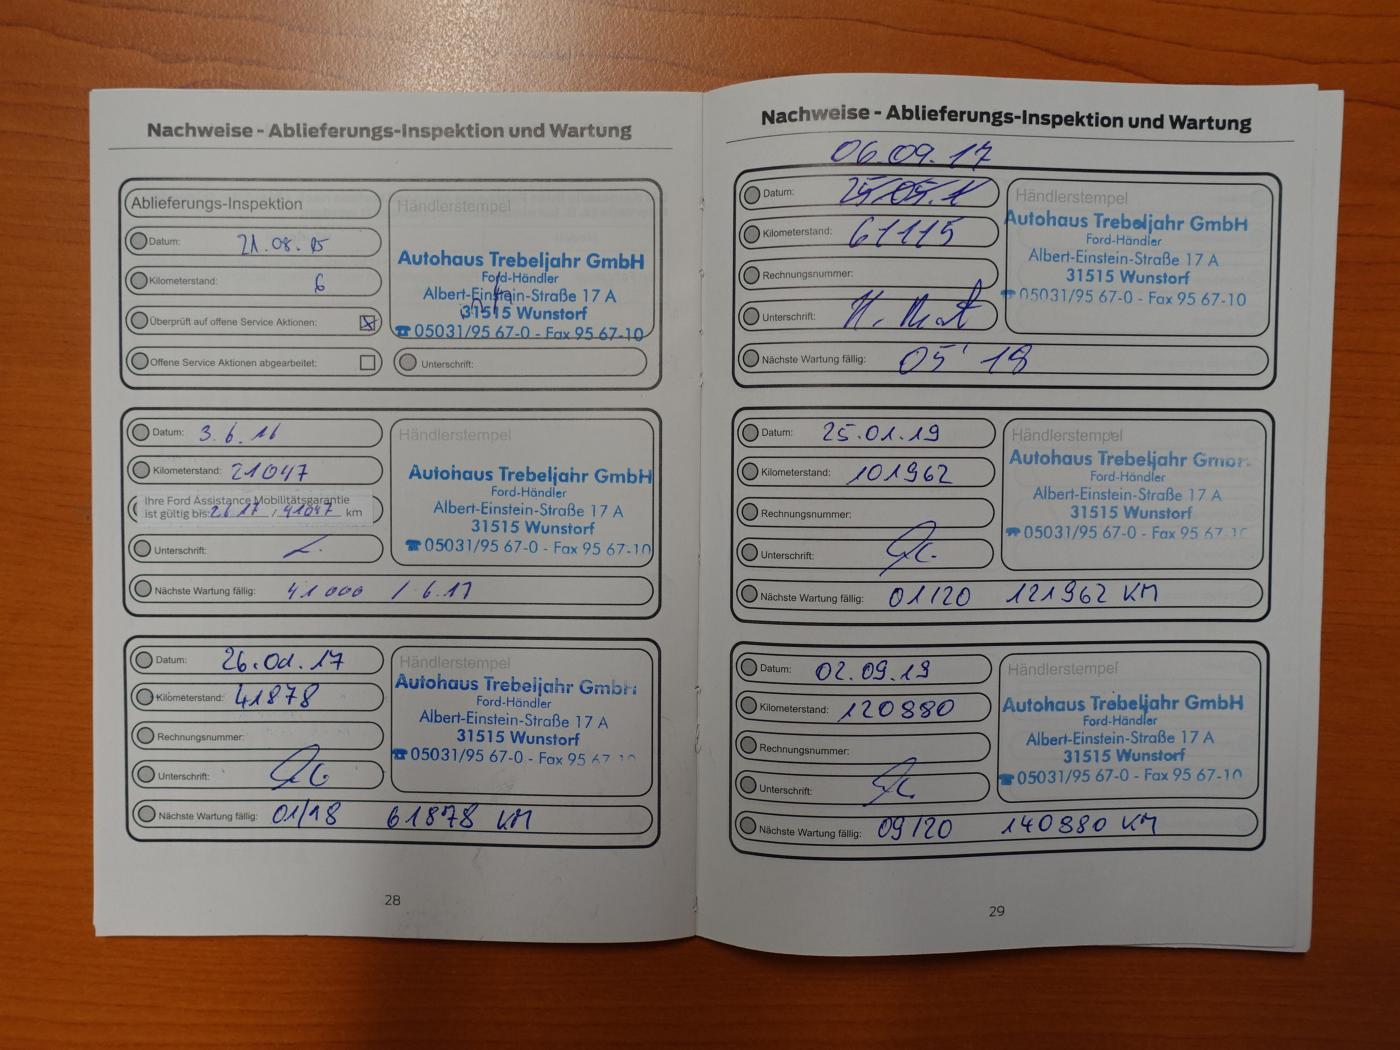 Nachweise - Ablieferungs-Inspektion und Wartung
Ablieferungs-Inspektion
Datum: 21.08.15
Kilometerstand: 6
Überprüft auf offene Service Aktionen:
Offene Service Aktionen abgearbeitet:
Händlerstempel
Autohaus Trebeljahr GmbH
Ford-Händler
Albert-Einstein-Straße 17 A
31515 Wunstorf
☎ 05031/95 67-0 - Fax 95 67-10
Unterschrift:
Datum: 3.6.16
Kilometerstand: 21047
Ihre Ford Assistance Mobilitätsgarantie
ist gültig bis: / 41047 km
Unterschrift:
Nächste Wartung fällig: 41000 / 6.17
Händlerstempel
Autohaus Trebeljahr GmbH
Ford-Händler
Albert-Einstein-Straße 17 A
31515 Wunstorf
☎ 05031/95 67-0 - Fax 95 67-10
Datum: 26.01.17
Kilometerstand: 41878
Rechnungsnummer:
Unterschrift:
Nächste Wartung fällig: 01/18 61878 KM
Händlerstempel
Autohaus Trebeljahr GmbH
Ford-Händler
Albert-Einstein-Straße 17 A
31515 Wunstorf
☎ 05031/95 67-0 - Fax 95 67-10
28
Nachweise - Ablieferungs-Inspektion und Wartung
06.09.17
Datum:
Kilometerstand: 61115
Rechnungsnummer:
Unterschrift:
Nächste Wartung fällig: 05' 18
Händlerstempel
Autohaus Trebeljahr GmbH
Ford-Händler
Albert-Einstein-Straße 17 A
31515 Wunstorf
☎ 05031/95 67-0 - Fax 95 67-10
Datum: 25.01.19
Kilometerstand: 101962
Rechnungsnummer:
Unterschrift:
Nächste Wartung fällig: 01/20 121962 KM
Händlerstempel
Autohaus Trebeljahr GmbH
Ford-Händler
Albert-Einstein-Straße 17 A
31515 Wunstorf
☎ 05031/95 67-0 - Fax 95 67-10
Datum: 02.09.19
Kilometerstand: 120880
Rechnungsnummer:
Unterschrift:
Nächste Wartung fällig: 09/20 140880 KM
Händlerstempel
Autohaus Trebeljahr GmbH
Ford-Händler
Albert-Einstein-Straße 17 A
31515 Wunstorf
☎ 05031/95 67-0 - Fax 95 67-10
29